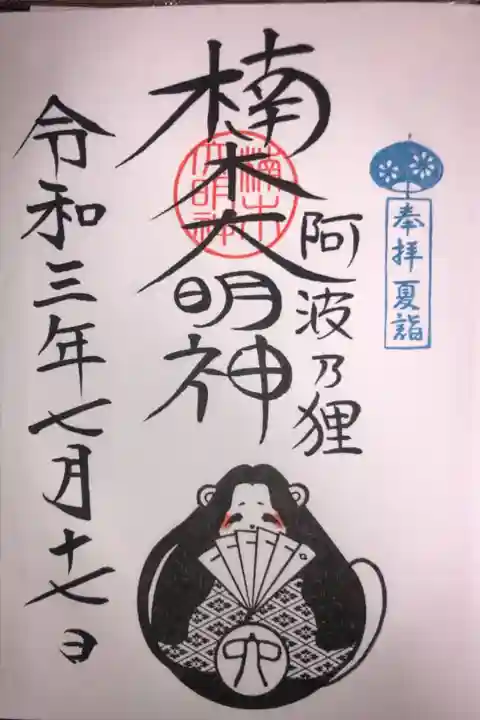 奉拝 夏詣
阿波乃狸
楠木大明神
楠木大明神
令和三年七月十七日
六